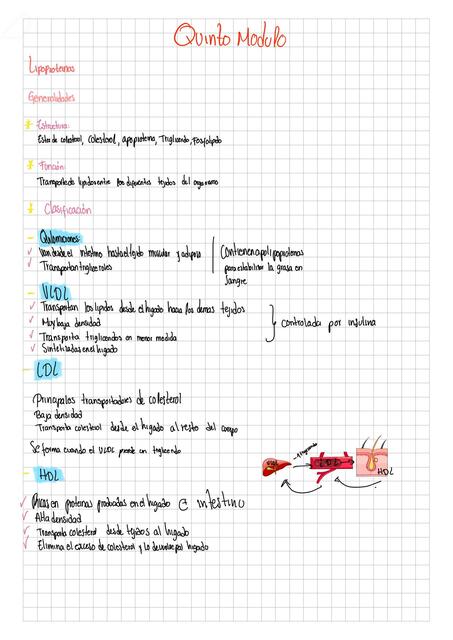 Quinto Modulo
Lipoproteínas
Generalidades
Estructura:
Ester de colesterol, colesterol, apoproteina, Triglicerido, Fosfolipido
Función:
Transportado lipidos entre los diferentes tejidos del organismo
Clasificación
Quilomicrones
Van desde el intestino hasta el tejido muscular y adiposo
Transportan trigliceroles
Contienen apolipoproteinas
para estabilizar la grasa en
sangre
VLDL
Transportan los lipidos desde el higado hacia los demas tejidos
Muy baja densidad
Transporta trigliceridos en menor medida
Sintetizadas en el higado
controlada por insulina
LDL
Principales transportadores de colesterol
Baja densidad
Transporta colesterol desde el higado al resto del cuerpo
Se forma cuando el VLDL pierde un triglicerido
LDL
HDL
HDL
Ricas en proteinas producidas en el higado e intestino
Alta densidad
Transporta colesterol desde tejidos al higado
Elimina el exceso de colesterol y lo devuelve al higado